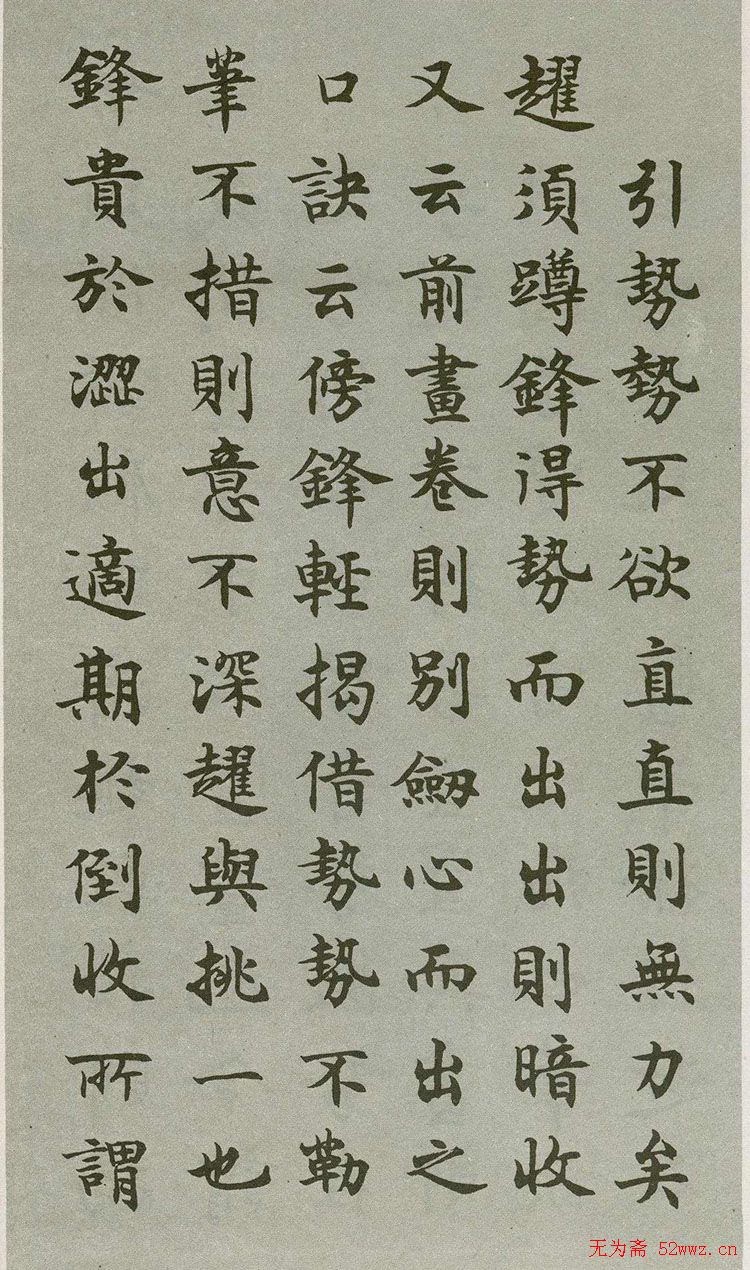 引勢勢不欲直直則無力矣
趯須蹲鋒得勢而出出則暗收
又云前畫卷則別劒心而出之
口訣云傍鋒輕揭借勢勢不勒
筆不措則意不深趯與挑一也
鋒貴於澀出適期於倒收所謂
无为斋 52wwz.cn